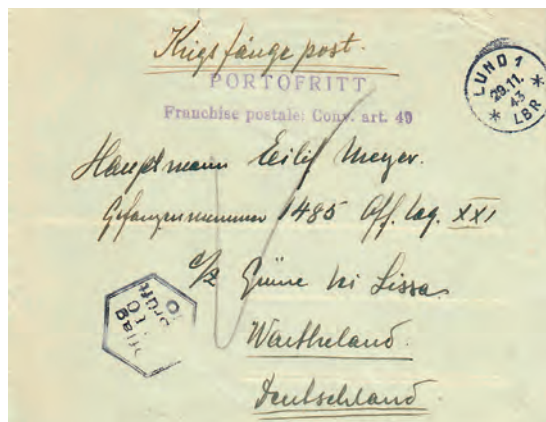 Krigsfångepost.
PORTOFRITT
Franchise postale: Conv. art. 49
LUND 1
29.11.
43
* LBR *
Hauptmann Eilif Meyer.
Gefangenennummer 1485 Off. lag. XXI
c/z Grüne bei Lissa.
Wartheland.
Deutschland.
Oflag
10
prüft